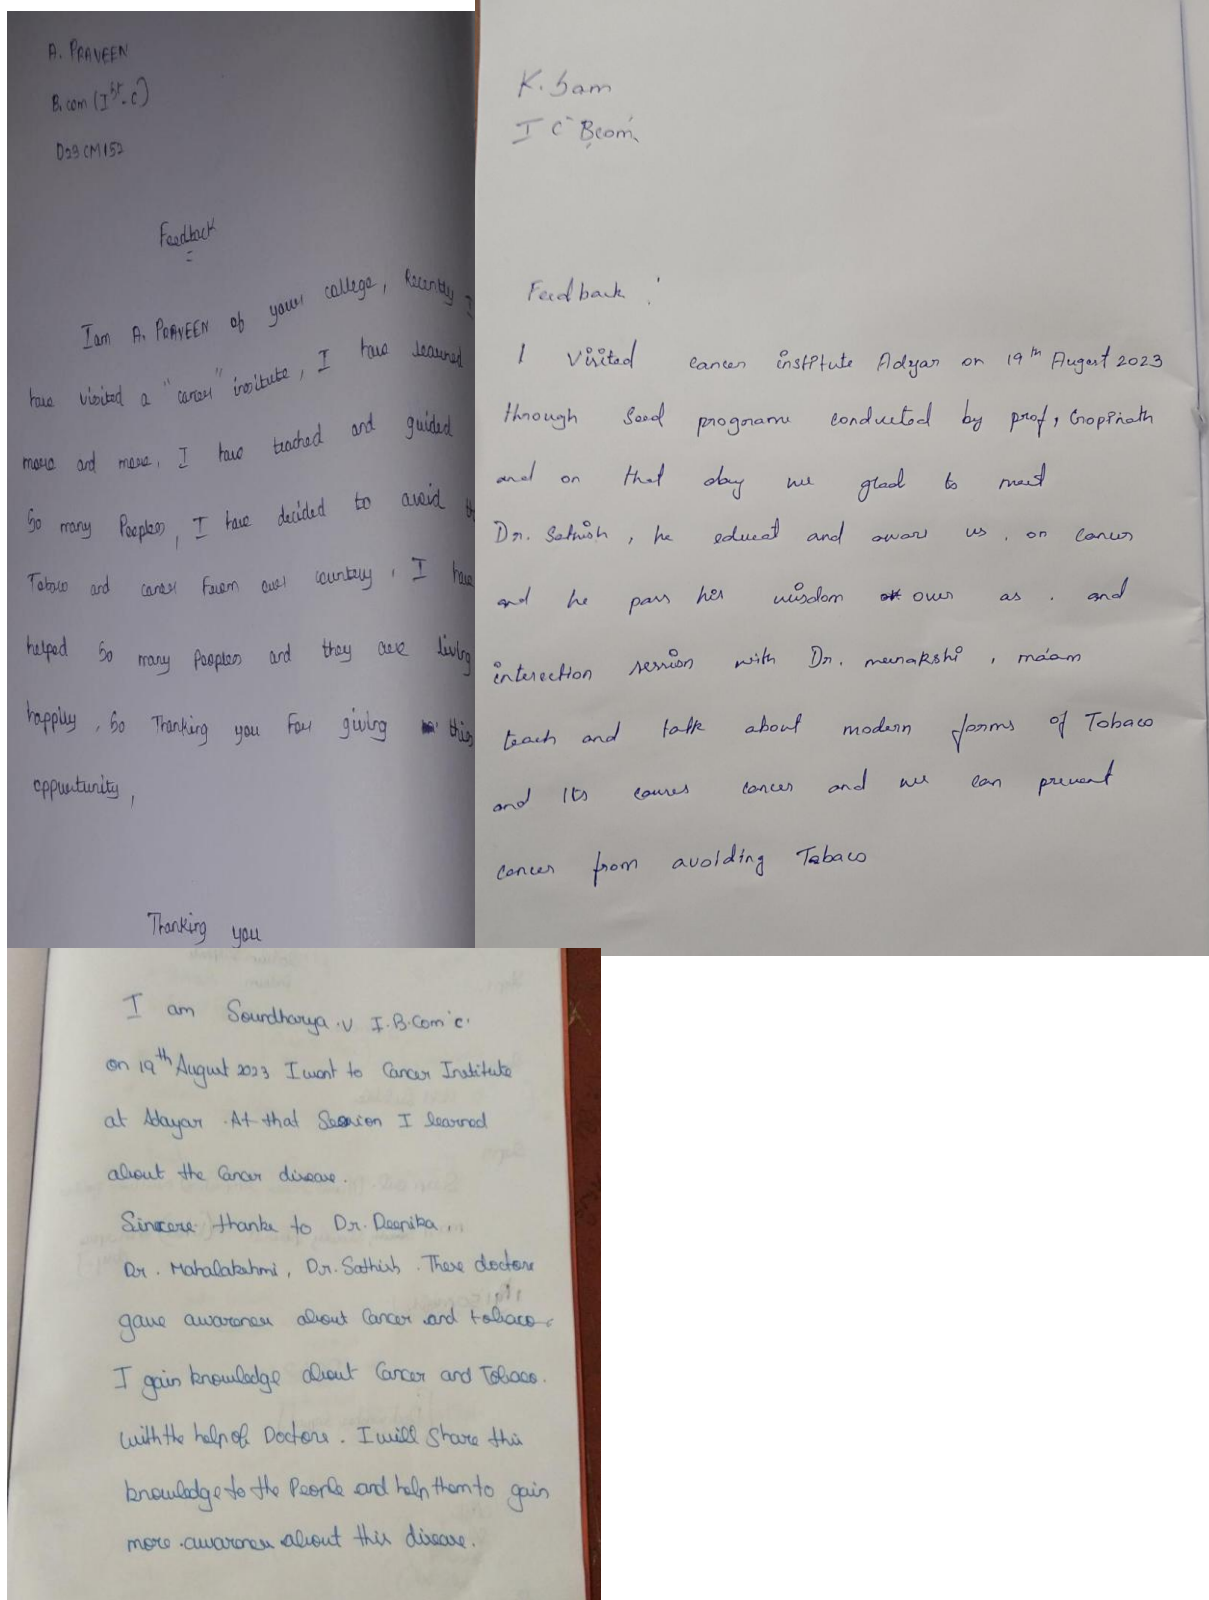 A. PRAVEEN
B.com (Ist - C)
D23CM152
Feedback
I am A. PRAVEEN of your college, Recently I
have visited a "cancer" insitute, I have learned
more and more, I have teached and guided
so many Peoples, I have decided to avoid th
Tobaco and cancer from our country, I have
helped so many peoples and they are living
happily, so Thanking you For giving this
oppurtunity,
Thanking you
K. Sam
I C Bcom
Feedback :
I Visited cancer institute Adyar on 19th August 2023
through Seed programe conducted by prof, Gopinath
and on that day we glad to meet
Dr. Sathish, he educat and aware us, on cancer
and he pass his wisdom over as. and
interection session with Dr. meenakshi, ma'am
teach and talk about modern forms of Tobaco
and Its causes cancer and we can prevent
cancer from avoiding Tabaco
I am Soundharya.V I.B.Com 'c'.
on 19th August 2023 I went to Cancer Institute
at Adayar. At that Session I learned
about the Cancer disease.
Sincere thanks to Dr. Deenika,
Dr. Mahalakshmi, Dr. Sathish. These doctors
gave awareness about Cancer and tobaco.
I gain knowledge about Cancer and Tobaco.
with the help of Doctors. I will Share this
knowledge to the People and help them to gain
more awareness about this disease.